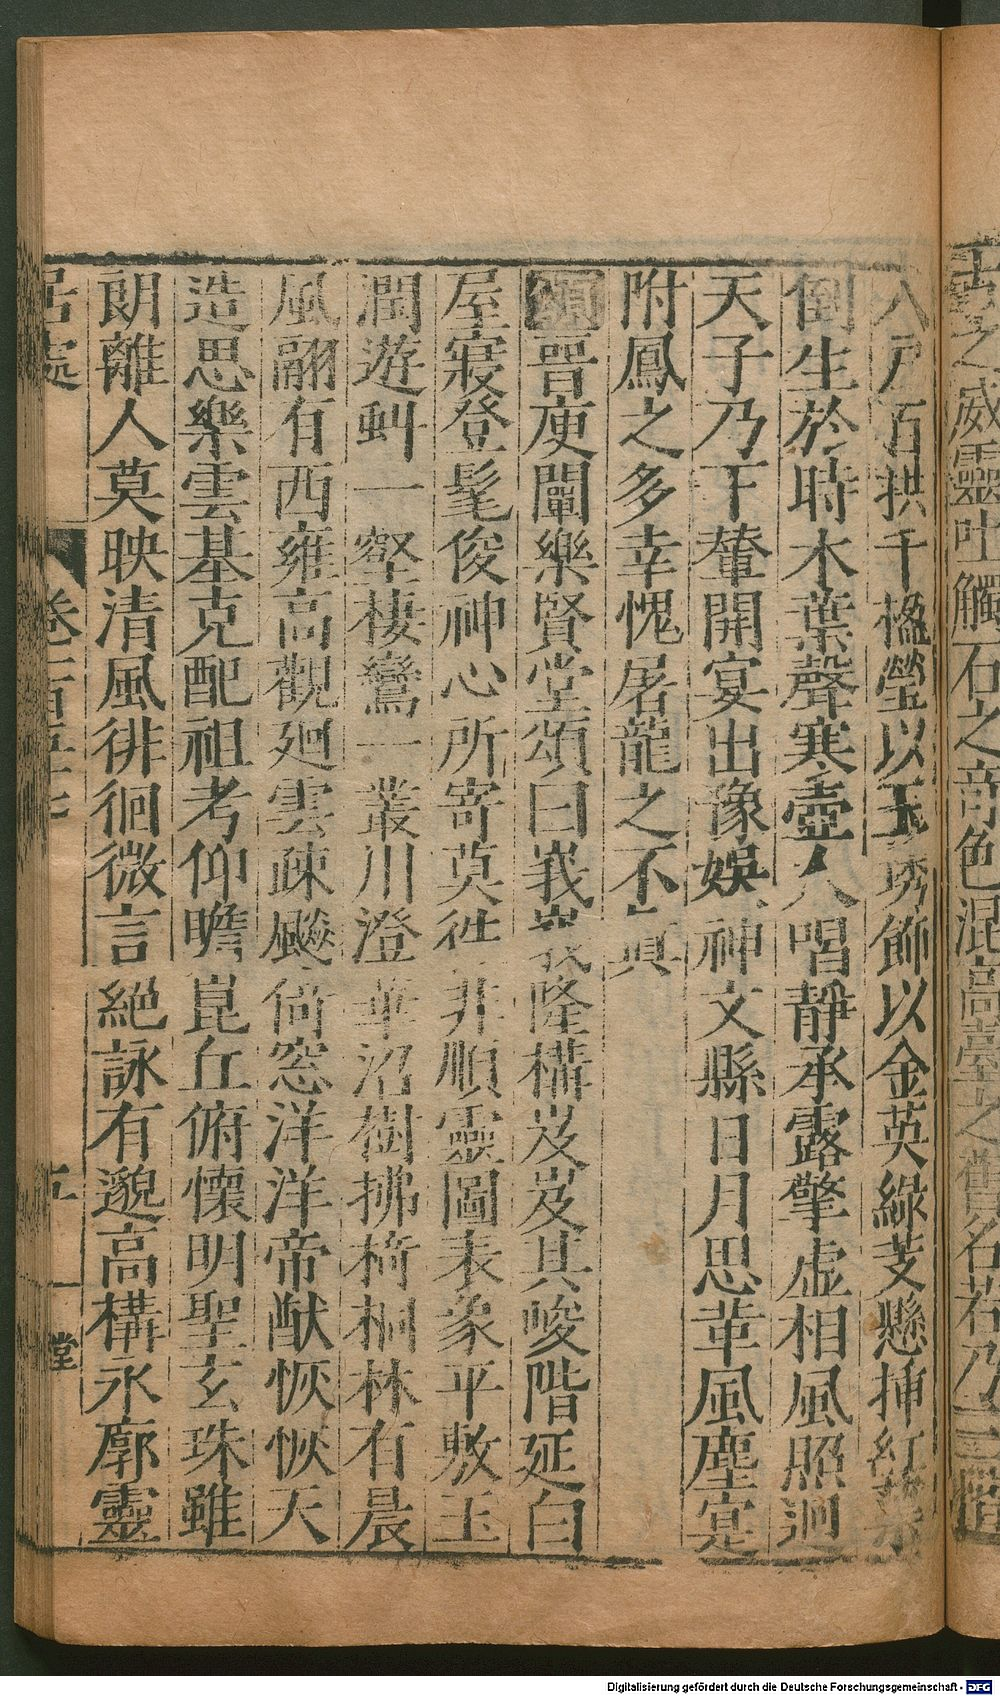 士衮之威靈吐觸石之奇色混高臺之舊名若乃三惜
八戶百拱千楹瑩以玉琇飾以金英綠芰懸揷紅蕖
倒生於時木葉聲寒壺人唱靜承露擎虛相風照迥
天子乃下輦開宴出豫娛神文縣日月思革風塵寔
附鳳之多幸愧屠龍之不真
頌晉庾闡樂賢堂頌曰峩峩隆構岌岌其峻階延白
屋寢登髦俊神心所寄莫往非順靈圖表象平敷玉
潤遊虯一壑棲鸞一叢川澄華沼樹拂椅桐林有晨
風翮有西雍高觀廻雲疎飈倚窓洋洋帝猷恢恢天
造思樂雲基克配祖考仰瞻崑丘俯懷明聖玄珠雖
朗離人莫映清風徘徊微言絕詠有邈高構永廓靈
居處 卷一百五十七 五 堂
Digitalisierung gefördert durch die Deutsche Forschungsgemeinschaft - DFG